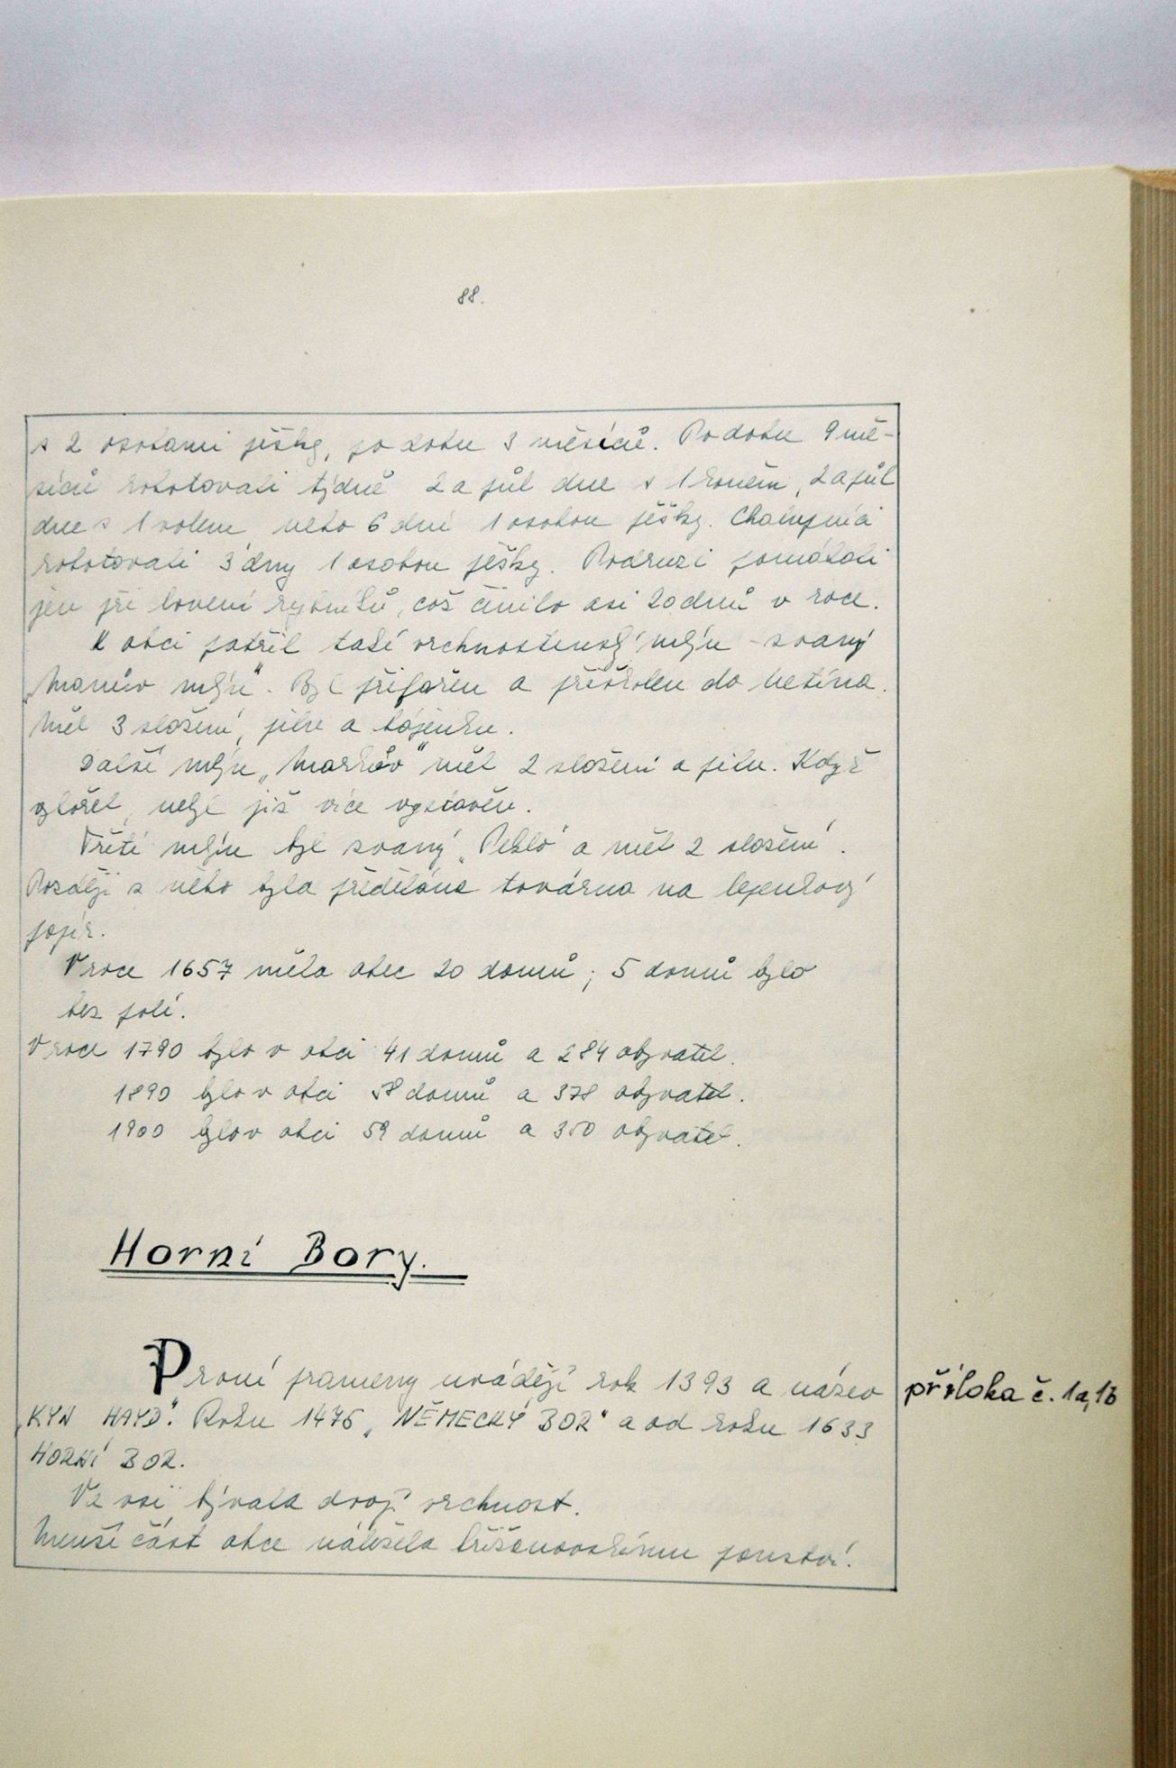 88.
s 2 osobami pěšky, po dobu 3 měsíců. Po dobu 9 mě-
síců robotovali týdně 2 a půl dne s 1 koněm, 2 a půl
dne s 1 volem nebo 6 dní 1 osobou pěšky. Chalupníci
robotovali 3 dny 1 osobou pěšky. Podruzi pomáhali
jen při lovení rybníků, což činilo asi 20 dnů v roce.
K obci patřil také vrchnostenský mlýn - zvaný
„Manův mlýn". Byl přifařen a přiškolen do Netína.
Měl 3 složení, pilu a
Další mlýn „Markův" měl 2 složení a pilu. Když
vyhořel, nebyl již více vystavěn.
Třetí mlýn byl zvaný „Peklo" a měl 2 složení.
Později z něho byla předělána továrna na lepenkový
papír.
V roce 1657 měla obec 20 domů; 5 domů bylo
bez polí.
V roce 1790 bylo v obci 41 domů a 284 obyvatel.
1890 bylo v obci 58 domů a 378 obyvatel.
1900 bylo v obci 59 domů a 350 obyvatel.
Horní Bory.
První prameny uvádějí rok 1393 a název
„KYN HAYD". Roku 1476 „NĚMECKÝ BOR" a od roku 1633
HORNÍ BOR.
Ve vsi bývala dvojí vrchnost.
Menší část obce náležela křižanovskému panství.
příloha č. 1a, 1b